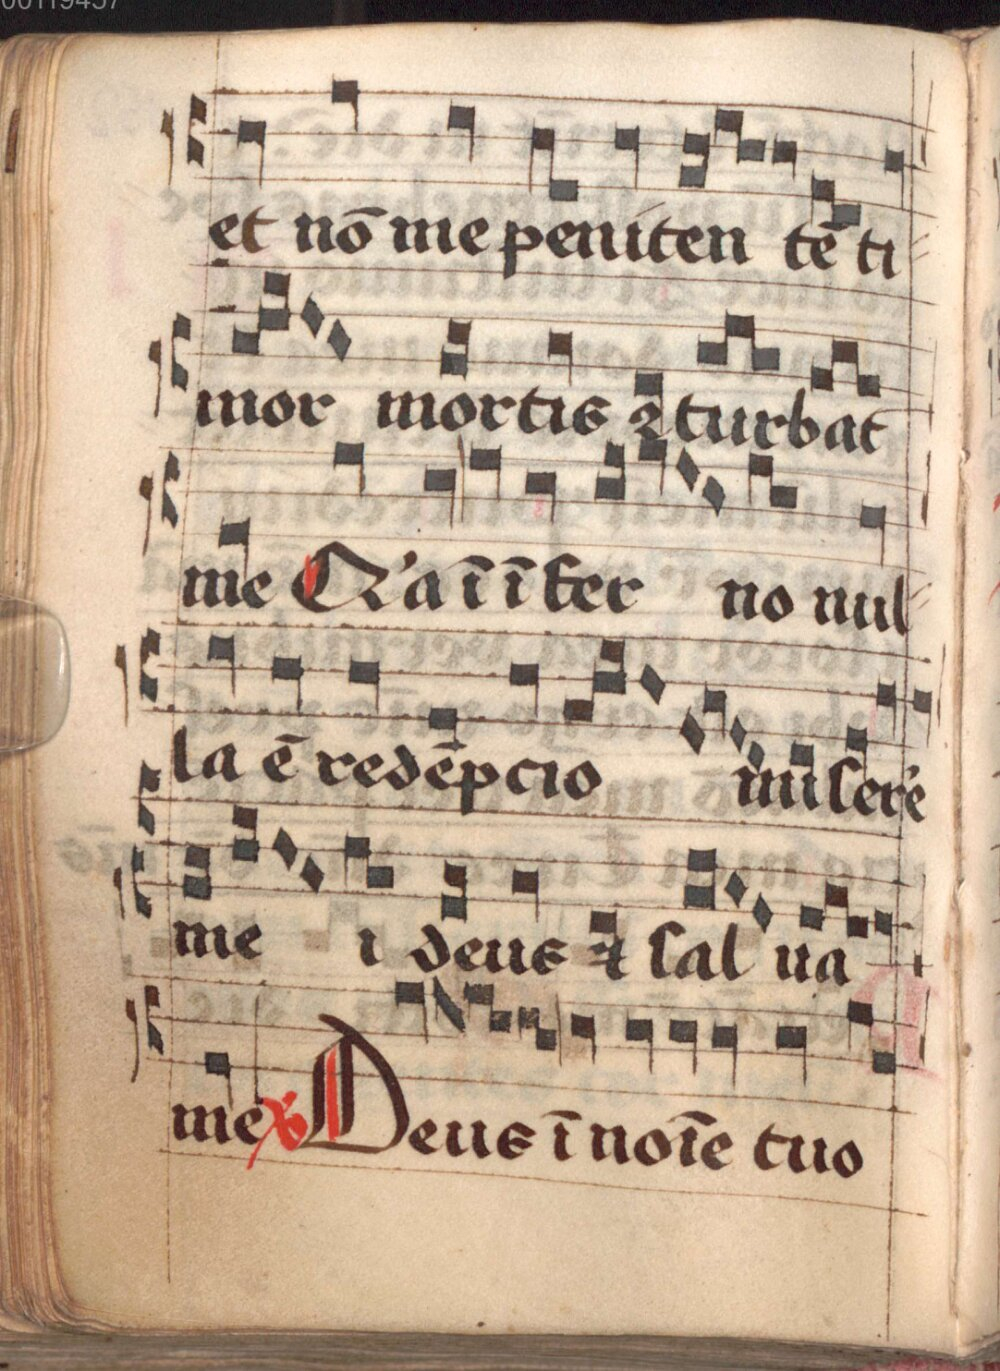 00119457
et nō me peniten tē ti
mor mortis ⁊ turbat
me Q'a ī ī fer no nul
la ē redēpcio miſere
me i deus ⁊ ſal ua
me ℣ Deus ī noīe tuo